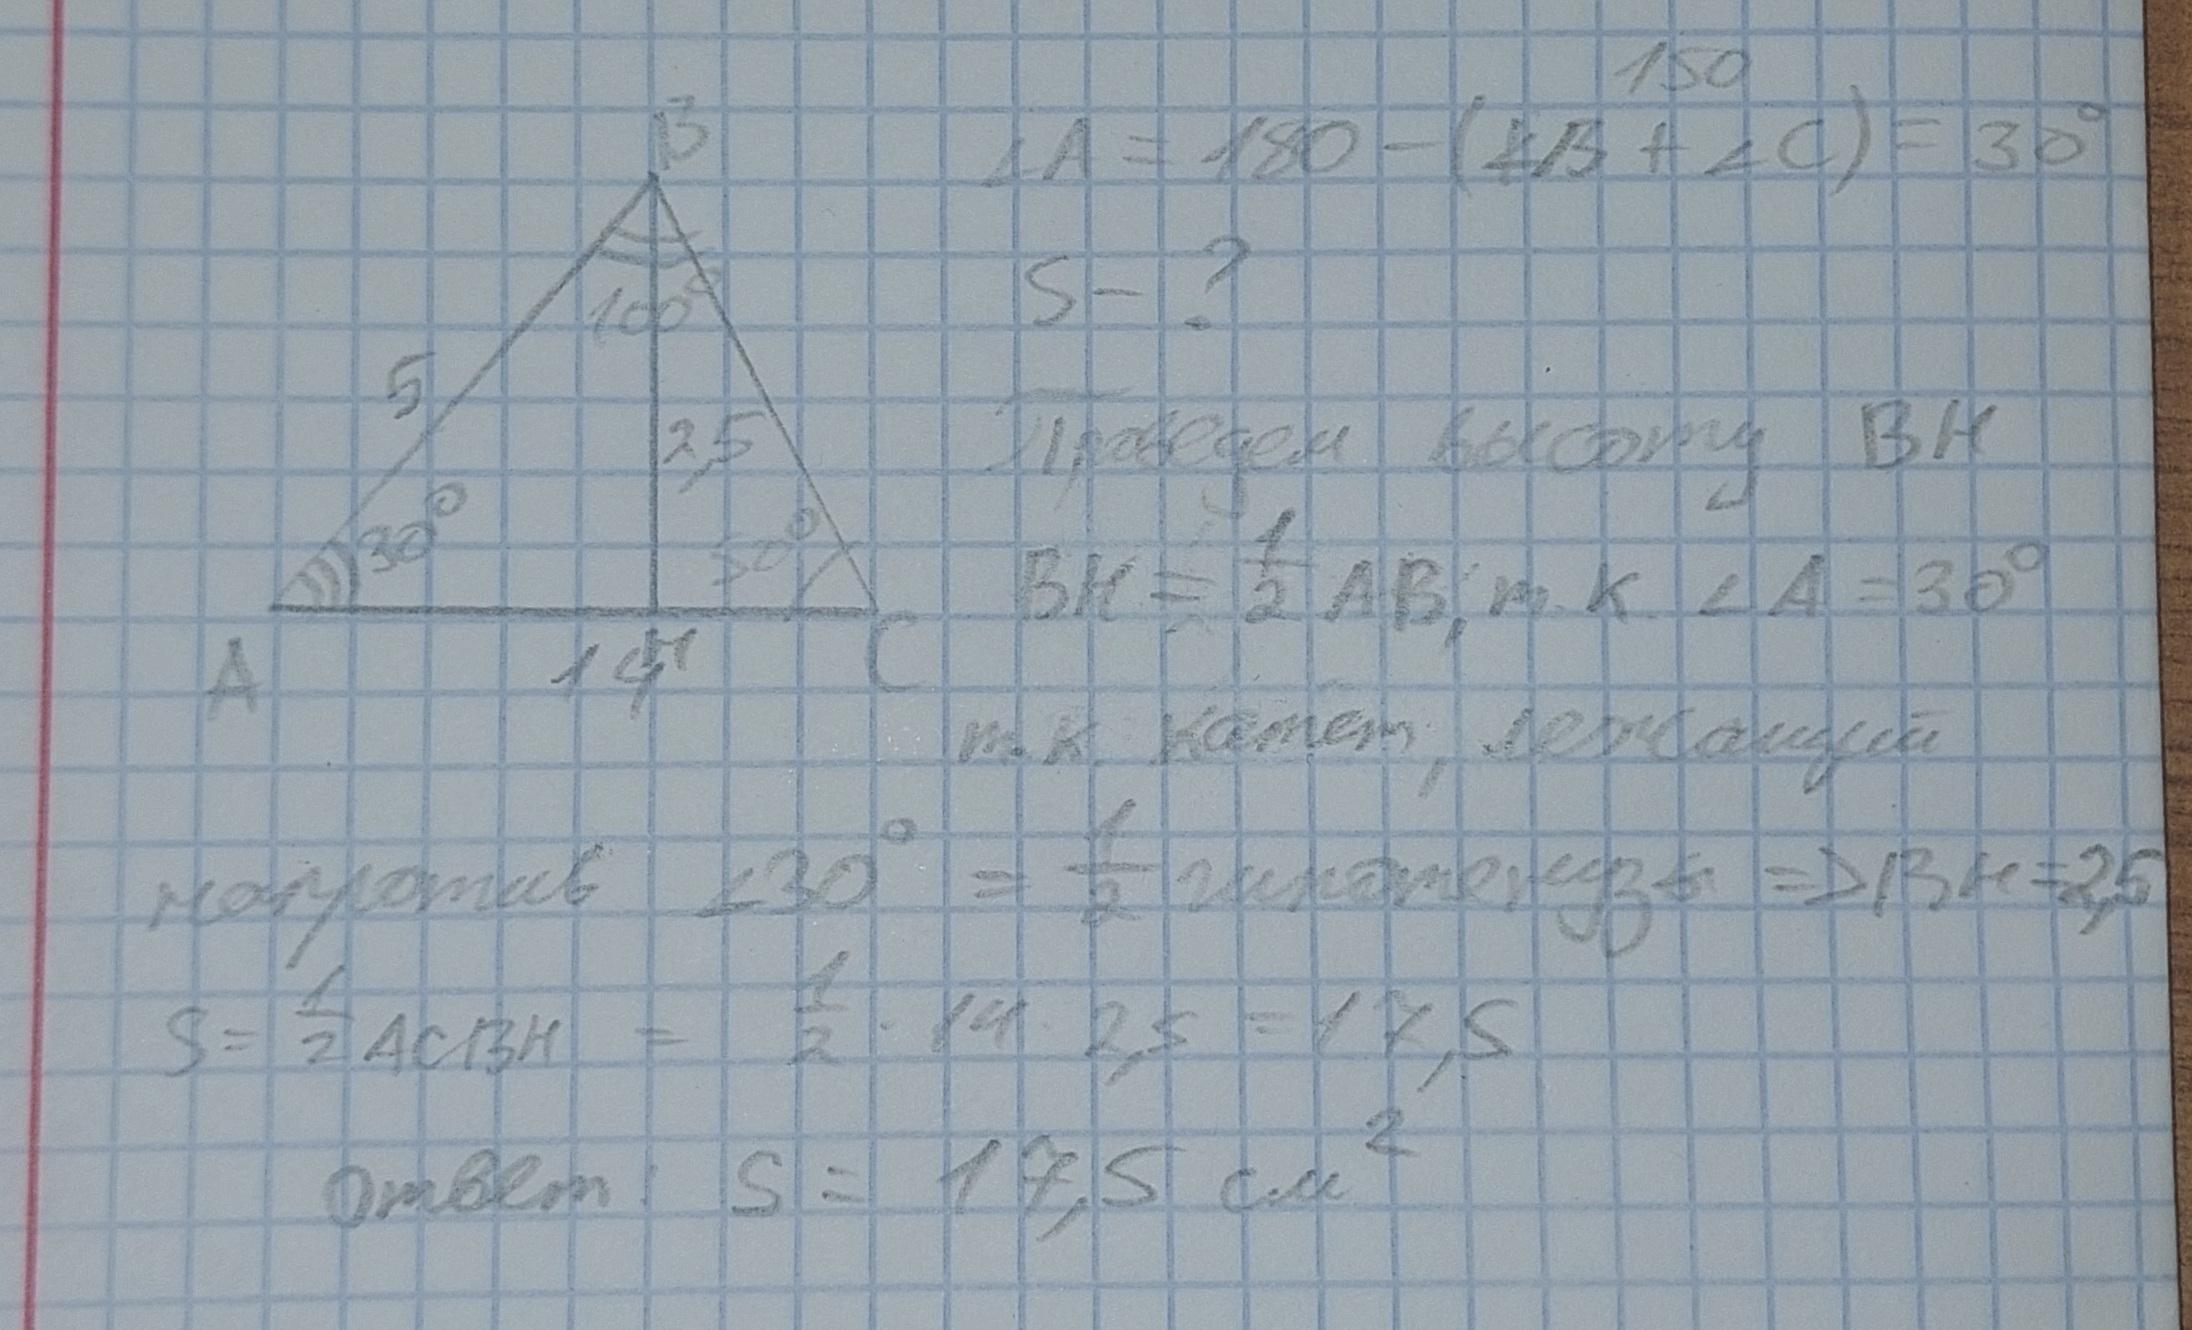 B
100°
5
2,5
30°
50°
A
14
H
C
150
∠A = 180 - (∠B + ∠C) = 30°
S - ?
Проведем высоту BH
BH = 1/2 AB, т.к. ∠A = 30°
т.к. катет, лежащий
напротив ∠30° = 1/2 гипотенузы => BH = 2,5
S = 1/2 ACBH = 1/2 · 14 · 2,5 = 17,5
Ответ: S = 17,5 см²